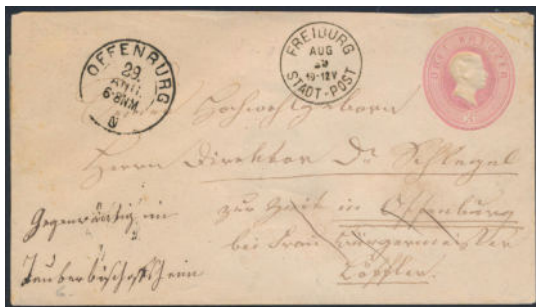 OFFENBURG
29.
AUG.
6-8NM.
N
FREIBURG
AUG
29
10-12V
STADT-POST
DREI KREUZER
Hochwohlgeboren
Herrn Direktor Dr. Schlegel
zur Zeit in Offenburg
bei Frau Bürgermeister
Löffler.
Gegenwärtig in
Tauberbischofsheim